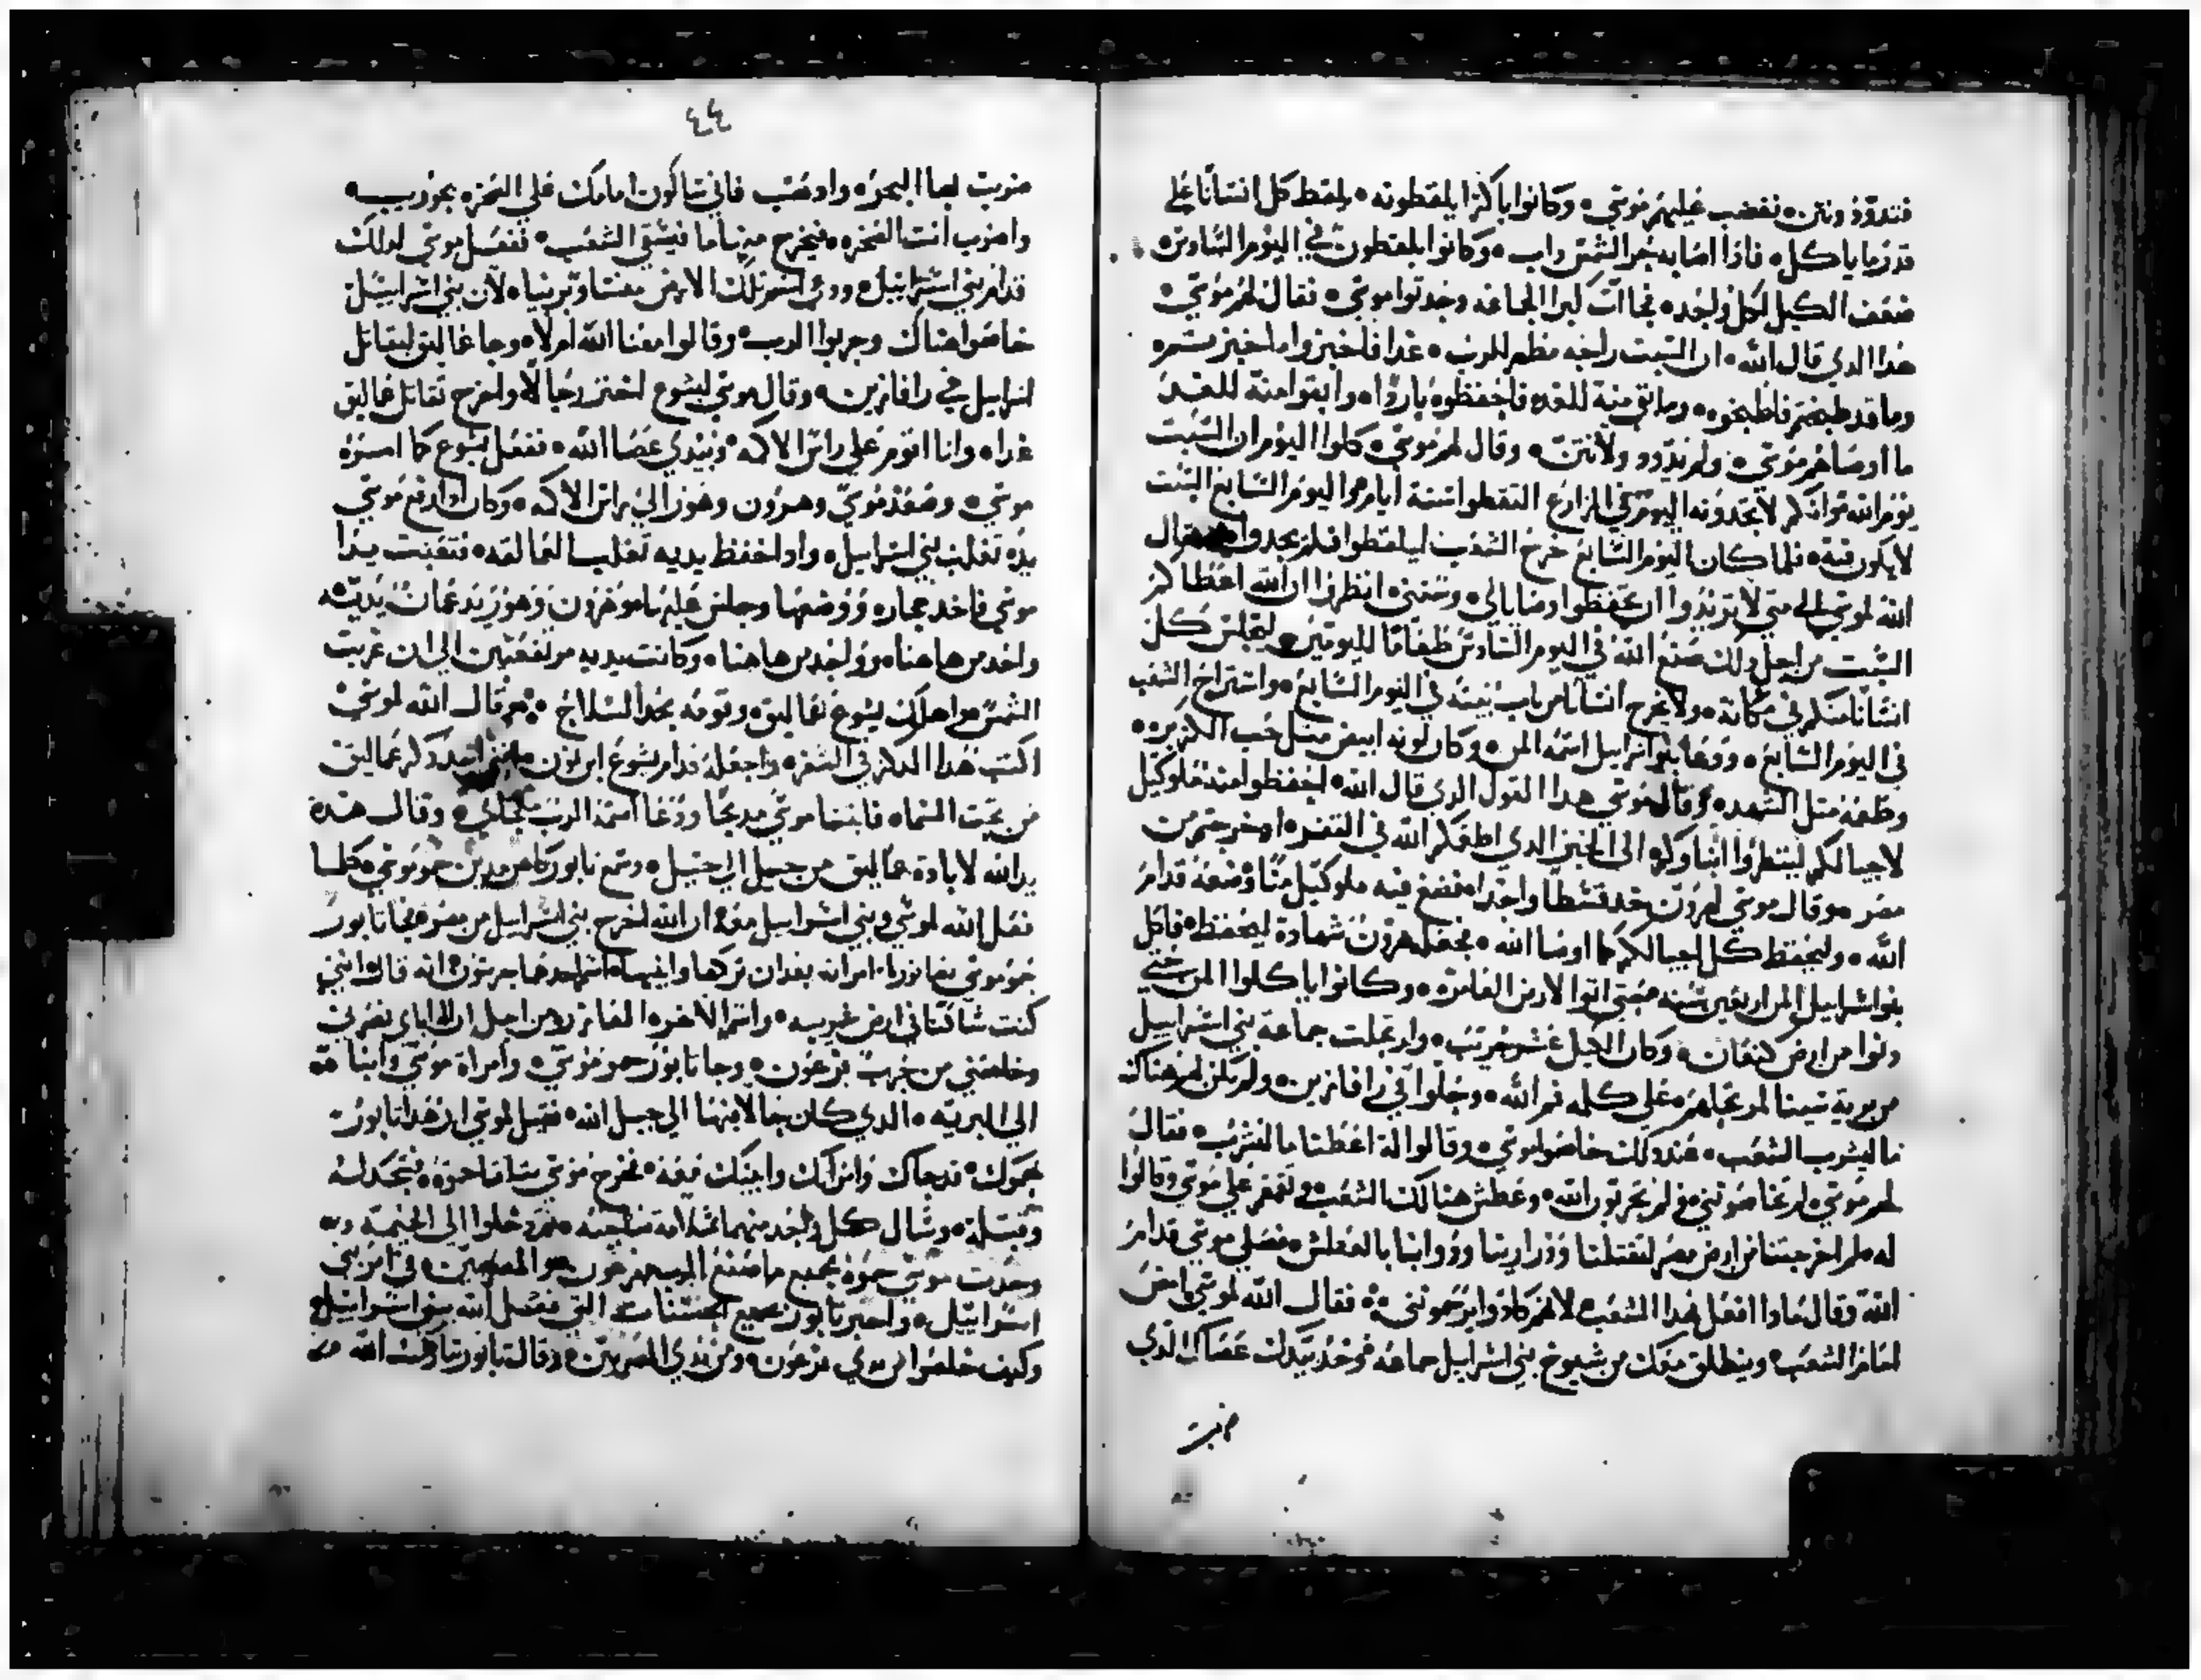 فتدوّد ونتن۰ فغضب عليهم موسي۰ وكانوا باكرًا يلقطونه۰ يلقط كل انسانًا علي
قدر ما ياكل۰ فاذا اصابه حر الشمس داب۰ وكانوا يلقطون في اليوم السادس
ضعف الكيل لكل واحد۰ فجاات كبرا الجماعه وحدتوا موسي۰ فقال لهم موسي۰
هدا الدي قال الله۰ ان السبت راحه مطهر للرب۰ غدا فاخبزوا ما
وما قد طبختم فاطبخوه۰ وما بقي منه للغد۰ فاحفظوه باردًا۰ وابقوا منه للغد
ما اوصاهم موسي۰ ولم يدود ولا نتن۰ وقال لهم موسي۰ كلوا اليوم ان السبت
يوم الله لا تجدونه اليوم في المزارع التقطوا ستة ايام واليوم السابع السبت
لا يكون فيه۰ فلما كان اليوم السابع خرج الشعب ليلقطوا فلم يجدوا فقال
الله لموسي الي متي لا تريدوا ان تحفظوا وصاياي۰ وسنني۰ انظروا ان الله اعطاكم
السبت من اجل دلك صنع الله في اليوم السادس طعامًا لليومين۰ ليجلس كل
انسانًا منكم في مكانه۰ ولا يخرج انسانًا من باب بيته في اليوم السابع۰ واستراح الشعب
في اليوم السابع۰ ودعا بنو اسرابيل اسمه المن۰ وكان لونه ابيض متل حب الكزبره۰
وطعمه متل الشهد۰ وقال موسي هدا القول الدي قال الله۰ احفظوا منه ملو كيل
لاجيالكم لينتظروا ابناوكم الي الخبز الدي اطعمكم الله في القفر۰ اد خرجتم من
مصر۰ وقال موسي لهرون خد قسطًا واحدًا۰ فضع فيه ملو كيل منًا وضعه قدام
الله۰ وليحفظ كل اجيالكم كما اوصا الله۰ فجعله هرون شهادة ليحفظ۰ فاكل
بنو اسرابيل المن اربعين سنه حتي اتوا الارض العامرة۰ وكانوا ياكلوا المن حتي
دنوا من ارض كنعان۰ وكان الكيل عشر۰ وارتحلت جماعة بني اسرابيل
من برية سينا علي كلمه فم الله۰ وحلّوا في رافازين۰ ولم يكن لهم هناك
ما ليشرب الشعب۰ فعند دلك خاصموا موسي۰ وقالوا له اعطنا ما لنشرب۰ فقال
لهم موسي۰ لم تخاصموني ولم تجربون الله۰ وعطش هنالك الشعب۰ وتقمقم علي موسي وقالوا
له لم اخرجتنا من ارض مصر لتقتلنا وذرارينا ودوابنا بالعطش۰ فصلي موسي قدام
الله وقال مادا افعل بهدا الشعب۰ لانهم كادوا يرجموني۰ فقال الله لموسي امض
امام الشعب۰ وينطلق معك من شيوخ بني اسرابيل جماعه۰ وخد بيدك عصاك الدي
ضربت
٤٤
ضربت بها البحر۰ وادهب فاني ساكون امامك علي الصخره بحوريب۰
واضرب انت الصخره۰ فيخرج منها ما فيسقي الشعب۰ ففعل موسي لدلك
قدام بني اسراييل۰ ودعي اسم تلك الارض لان بني اسراييل
خاصموا هناك وجربوا الرب۰ وقالوا معنا الله ام لا۰ وجا عماليق ليقاتل
اسرابيل في رافازين۰ وقال موسي ليشوع اختر رجالًا واخرج تقاتل عماليق
غدا۰ وانا اقوم علي راس الاكمه۰ وبيدي عصا الله۰ ففعل يشوع كما امره
موسي۰ وصعد موسي وهرون وهور الي راس الاكمه۰ وكان ادا رفع موسي
يده تغلب بني اسرابيل۰ وادا خفض يديه تغلب العمالقه۰ فتعبت يدا
موسي فاخد حجارة ووضعها وجلس عليها موسي وهرون وهور يدعمان يديه
واحد من هاهنا۰ وواحد من هاهنا۰ وكانت يديه مرتفعتين الي ان غربت
الشمس۰ واهلك يشوع عماليق۰ وقومه بحد السلاح۰ وقال الله لموسي
اكتب هدا الدكر في السفر۰ واجعله قدام يشوع ابن نون دكر عماليق
من تحت السما۰ فابتنا موسي مدبحًا ودعا اسمه الرب ملجاي۰ وقال هده
يد الله لابادة عماليق من جيل الي جيل۰ وسمع تابور كاهن مدين حمو موسي كلما
فعل الله لموسي وبني اسرابيل معه ان الله اخرج بني اسرابيل من مصر۰ فجا تابور
حمو موسي امراته بعد ان تركها وابنيها۰ اسم احدهما جرسون۰ انه قال انني
كنت ساكنًا في ارض غريبه۰ واسم الاخر العازر۰ من اجل ان اله اباي نصرني
وخلصني من حرب فرعون۰ وجا تابور حمو موسي۰ وامراة موسي وابنا
الي البريه۰ الدي كان حالا فيها الي جبل الله۰ فقيل لموسي ان هدا تابور
حموك۰ قد جاك وامراتك وابنيك معه۰ فخرج موسي حموه۰ فسجد له
وقبله۰ وسال كل واحد منهما سلامة صاحبه۰ ثم دخلوا الي الخيمه
وحدت موسي حموه بجميع ما صنع الرب بفرعون والمصريين۰ في امر بني
اسراييل۰ واخبر تابور بجميع الحسنات التي فعل الله ببني اسراييل۰
وكيف خلصوا من يدي فرعون۰ ومن يدي المصريين۰ وقال تابور تبارك الله